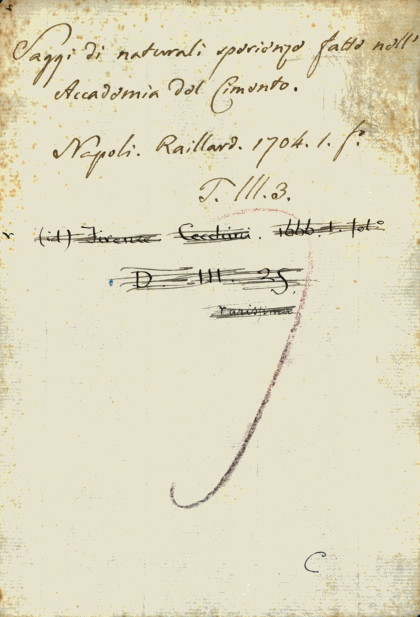 Saggi di naturali sperienze fatte nell'
Accademia del Cimento.
Napoli. Raillard. 1704. 1. fº
T. III. 3.
(id) Firenze Cecchini. 1666. 1. folº
D. III. 25.
rarissima
C